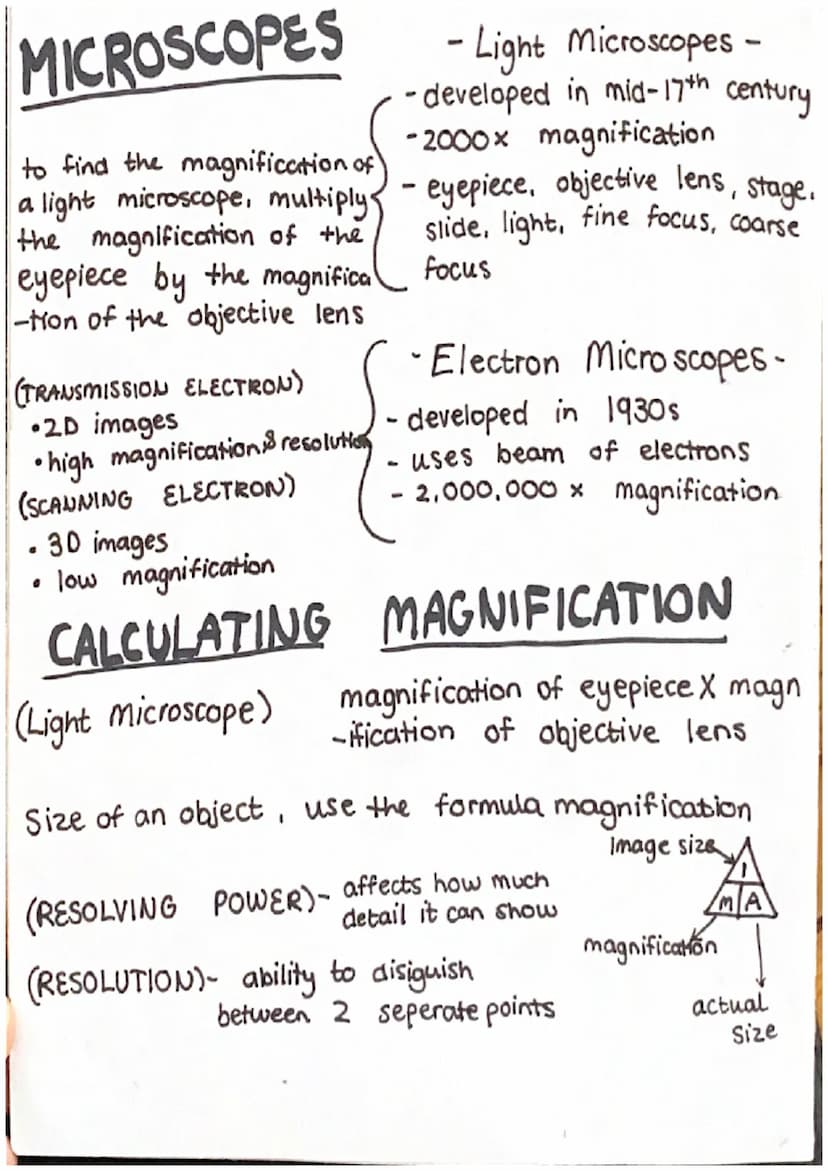 MICROSCOPES
- Light Microscopes -
- developed in mid-17th century
- 2000x magnification
- eyepiece, objective lens, stage,
slide, light, fine focus, coarse
focus
to find the magnification of
a light microscope, multiply
the magnification of the
eyepiece by the magnifica
-tion of the objective lens
- Electron Microscopes -
- developed in 1930s
- uses beam of electrons
- 2,000,000 x magnification
(TRANSMISSION ELECTRON)
• 2D images
• high magnification & resolution
(SCANNING ELECTRON)
• 3D images
• low magnification
CALCULATING MAGNIFICATION
(Light microscope)
magnification of eyepiece X magn
-ification of objective lens
Size of an object, use the formula magnification
(RESOLVING POWER)- affects how much
detail it can show
(RESOLUTION)- ability to disiguish
between 2 seperate points
Image size
I
M A
magnification
actual
size